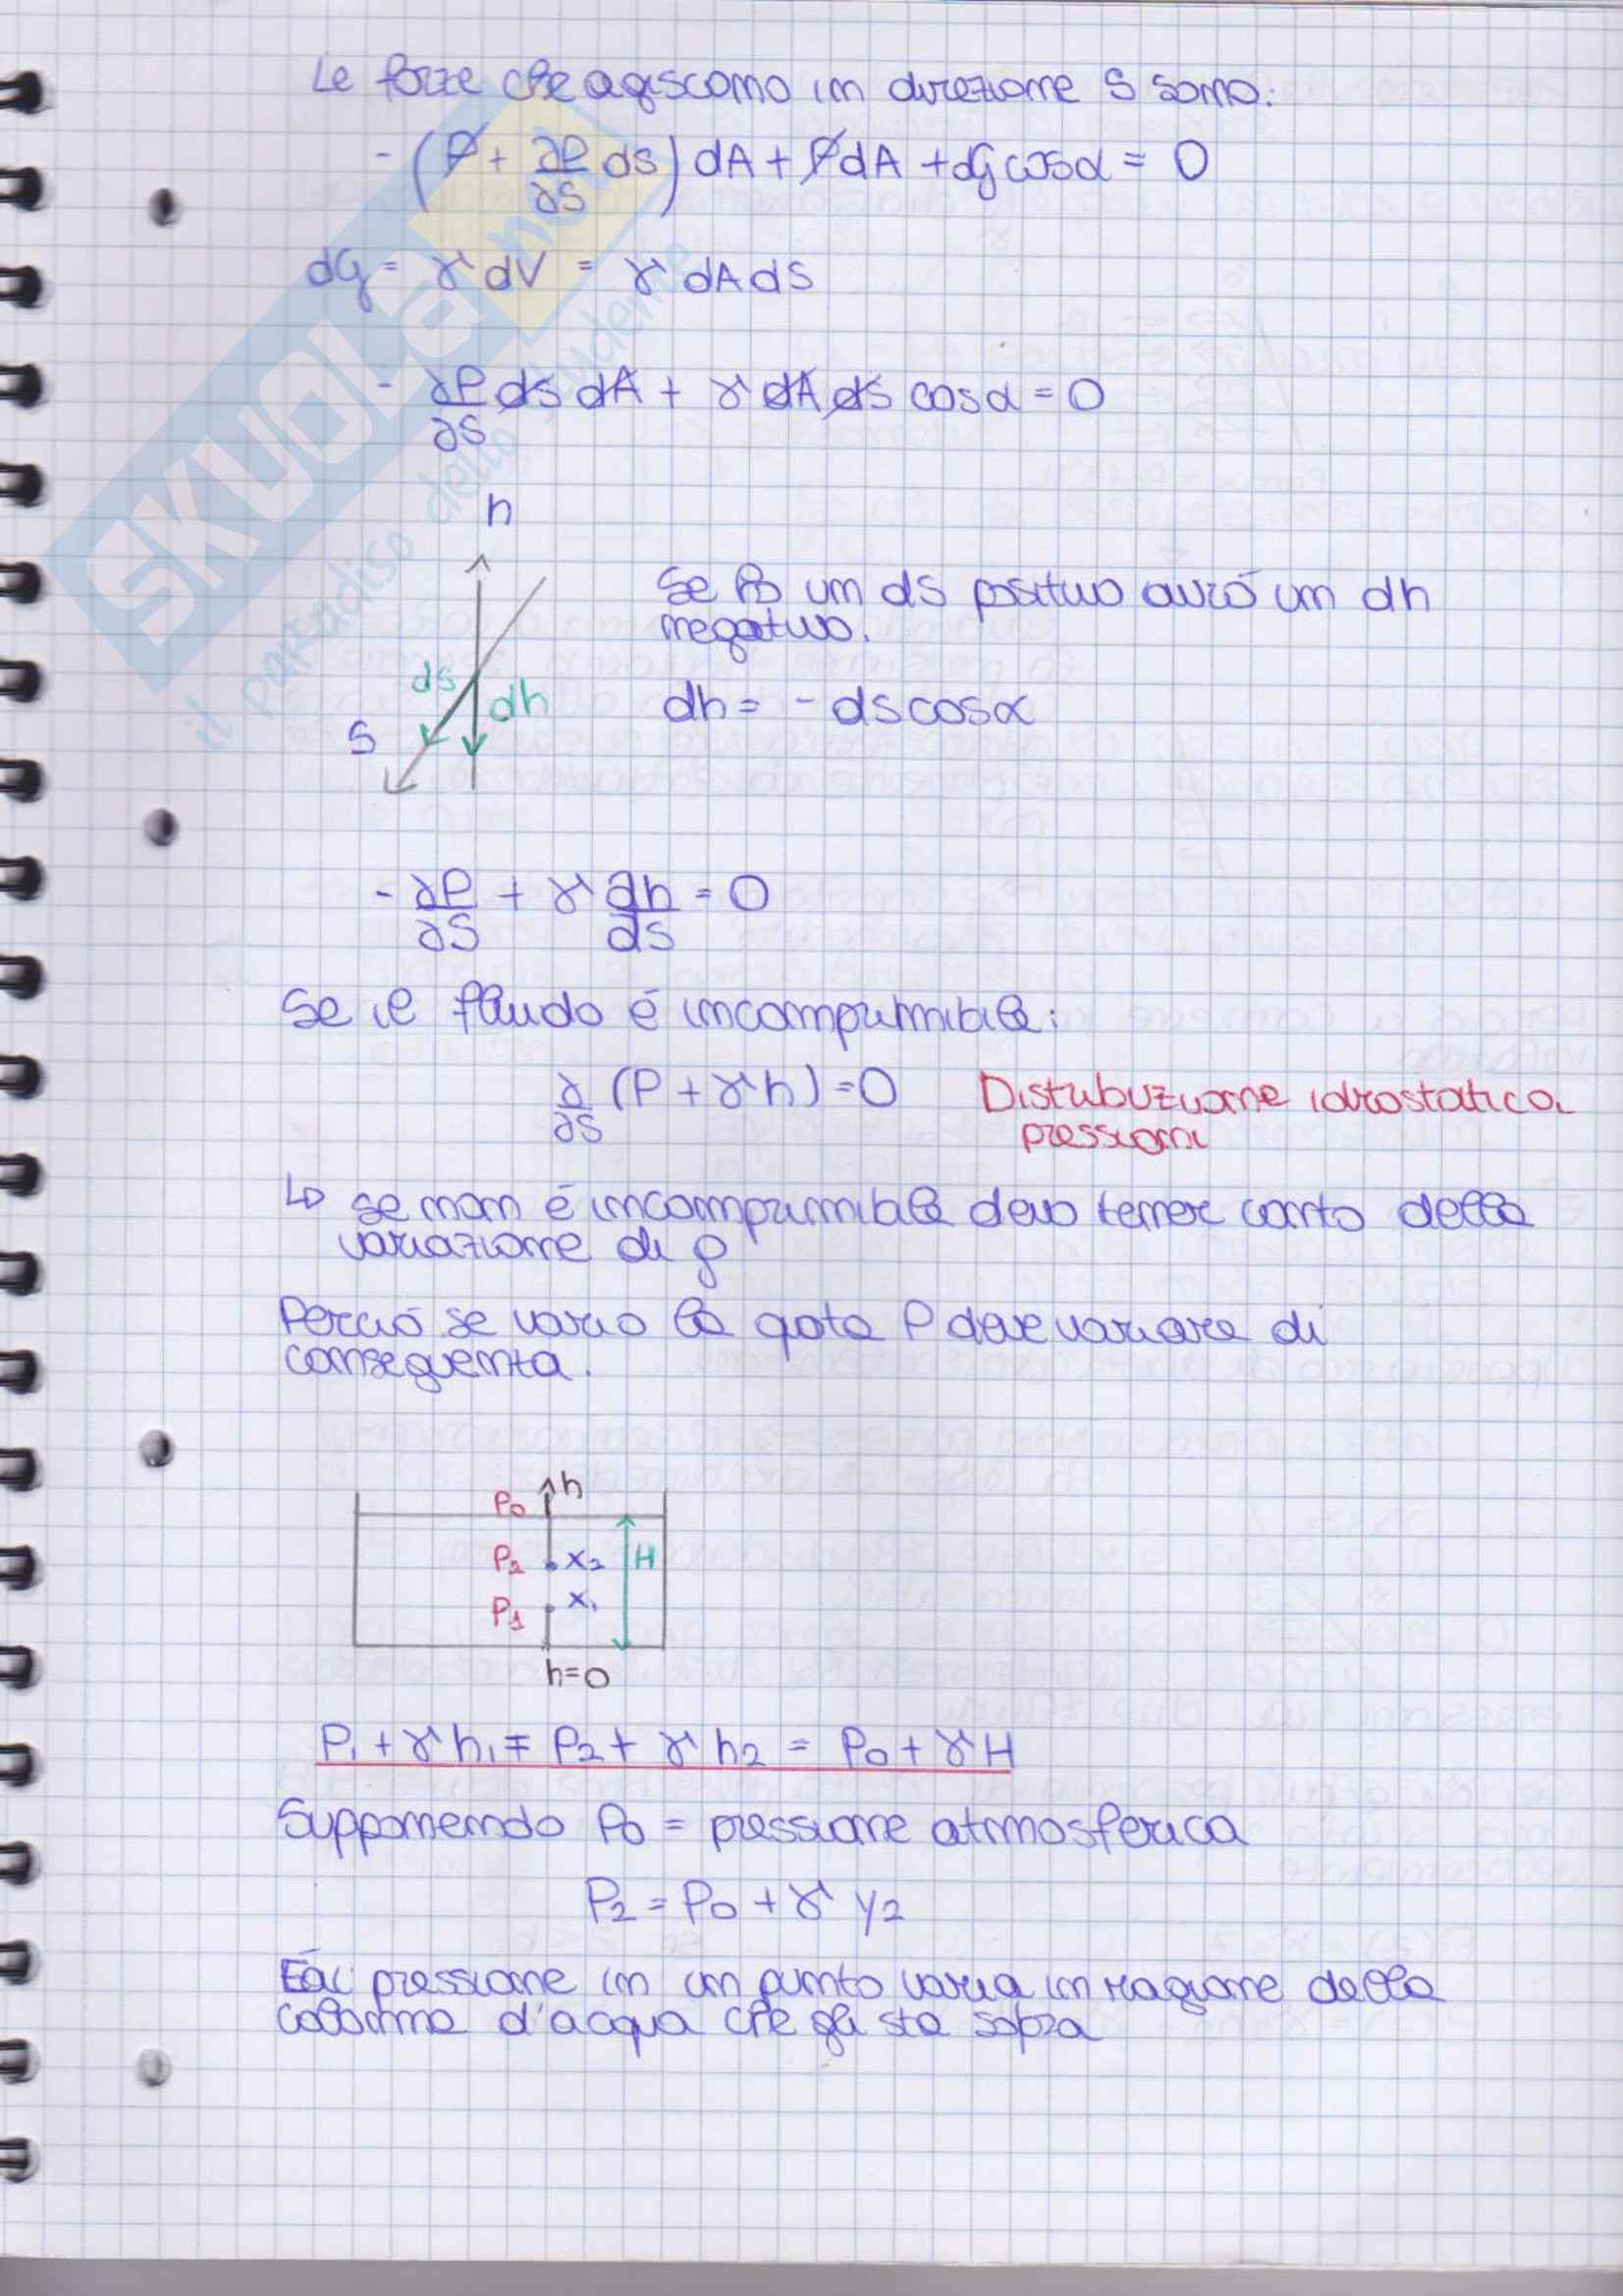 Le forze che agiscono in direzione S sono:
- (P + ∂P/∂S ds) dA + P dA + dG cosα = 0
dG = γ dV = γ dA ds
- ∂P/∂S ds dA + γ dA ds cosα = 0
h
Se ho un ds positivo avrò un dh
negativo.
ds
dh
S
dh = - ds cosα
- ∂P/∂S + γ dh/ds = 0
Se il fluido é incomprimibile:
∂/∂S (P + γh) = 0 Distribuzione idrostatica
pressioni
↳ se non é incomprimibile devo tener conto della
variazione di ρ
Perció se vario la quota P deve variare di
conseguenza.
h
P0
P2 x2 H
P1 x1
h=0
P1 + γ h1 = P2 + γ h2 = P0 + γ H
Supponendo P0 = pressione atmosferica
P2 = P0 + γ y2
La pressione in un punto varia in ragione della
colonna d'acqua che gli sta sopra
SKUOLA.net
il paradiso dello studente